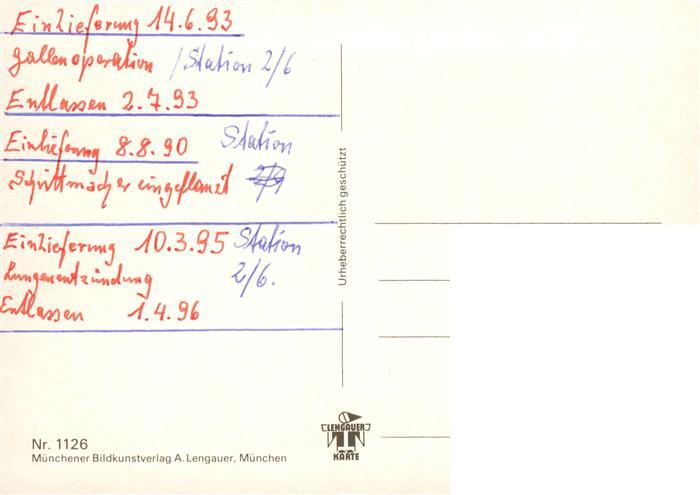 Einlieferung 14.6.93
Gallenoperation / Station 2/6
Entlassen 2.7.93
Einlieferung 8.8.90 Station
Schrittmacher eingeflanzt
Einlieferung 10.3.95 Station
Lungenentzündung 2/6.
Entlassen 1.4.96
Urheberrechtlich geschützt
LENGAUER
KARTE
Nr. 1126
Münchener Bildkunstverlag A. Lengauer, München